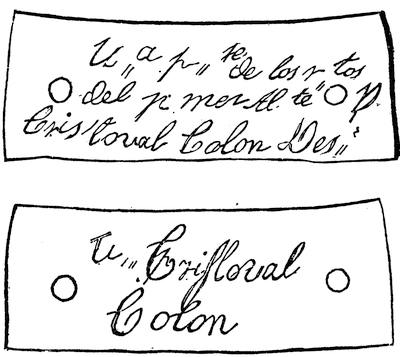 U,, a p,, te. de los r tos
del p. mer Al. te D.
Cristoval Colon Des,,
U,,, Cristoval
Colon